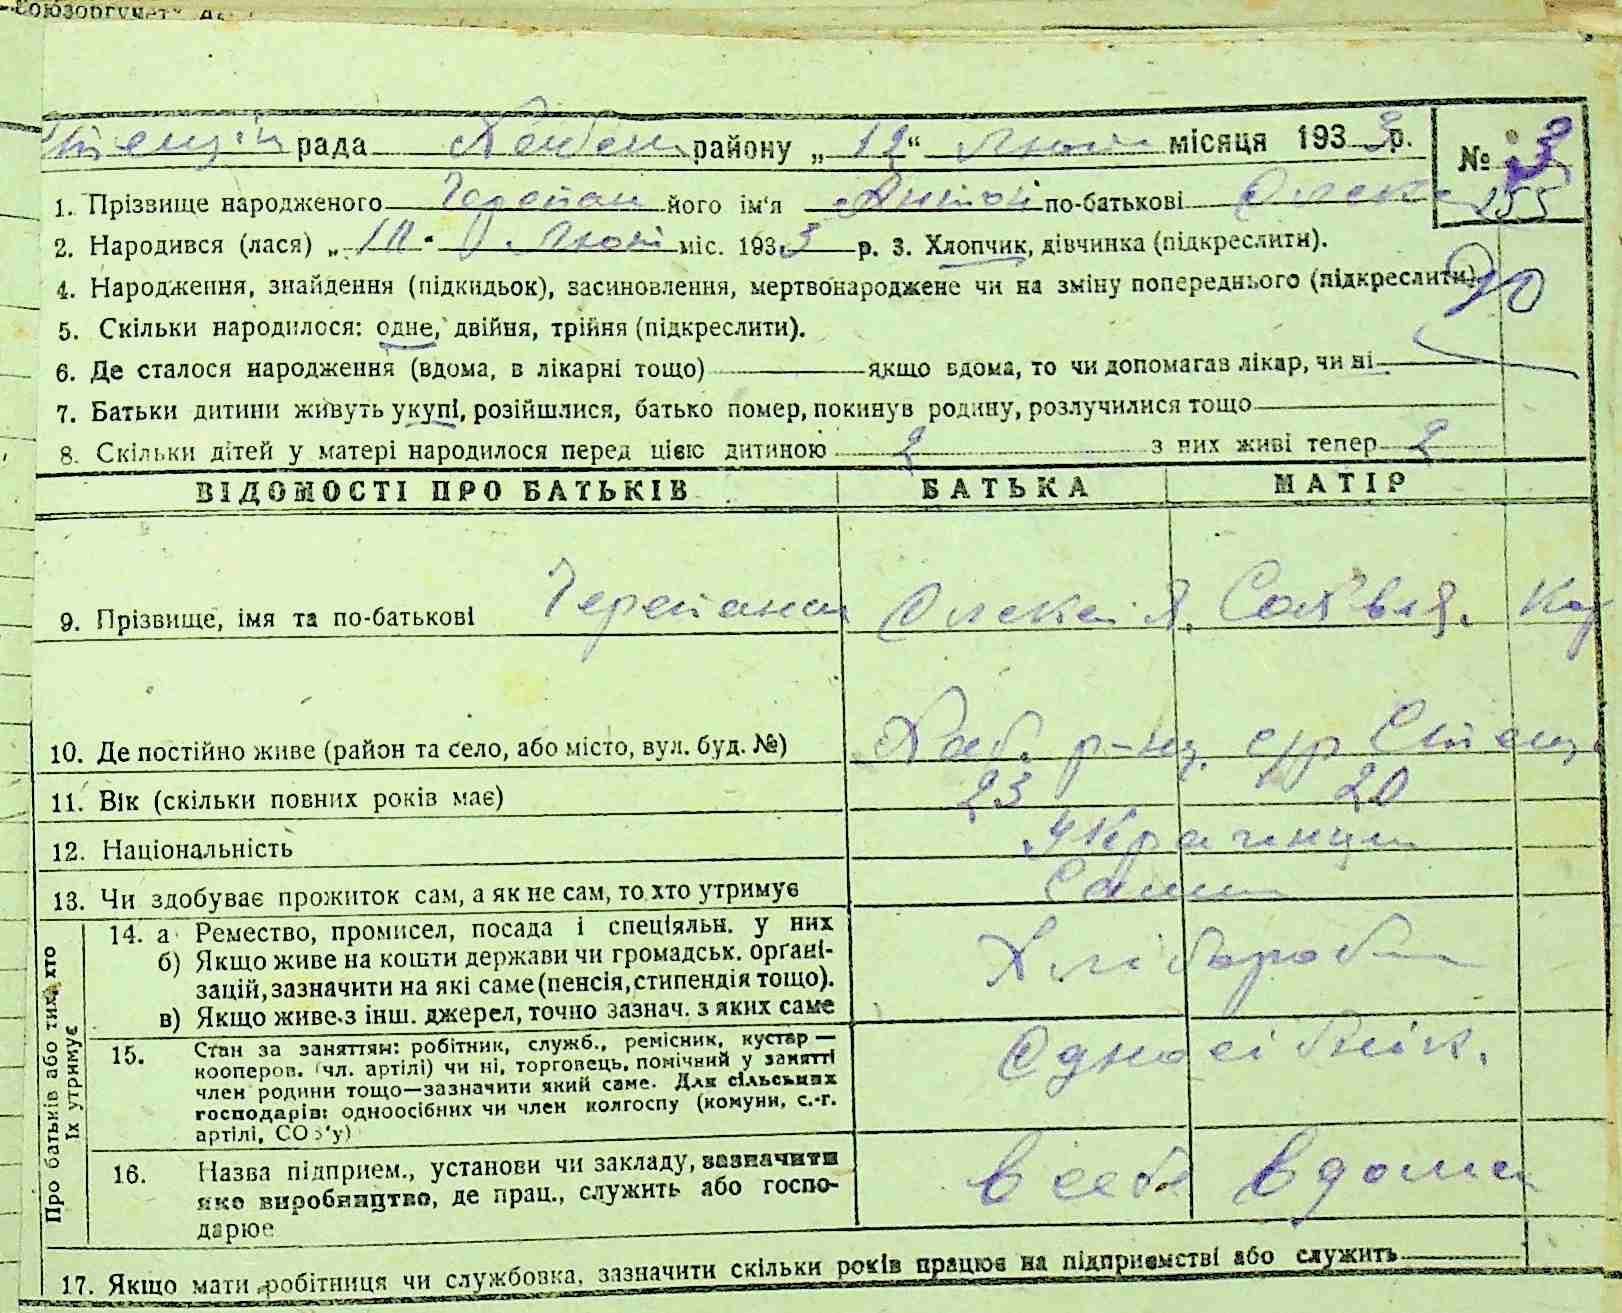 рада району „ 12 “ місяця 193 3 р. № 3
1. Прізвище народженого його ім'я Антон по-батькові Олекс 255
2. Народився (лася) „ міс. 193 3 р. 3. Хлопчик, дівчинка (підкреслити).
4. Народження, знайдення (підкидьок), засиновлення, мертвонароджене чи на зміну попереднього (підкреслити)
5. Скільки народилося: одне, двійня, трійня (підкреслити).
6. Де сталося народження (вдома, в лікарні тощо) якщо вдома, то чи допомагав лікар, чи ні
7. Батьки дитини живуть укупі, розійшлися, батько помер, покинув родину, розлучилися тощо
8. Скільки дітей у матері народилося перед цією дитиною 2 з них живі тепер 2
ВІДОМОСТІ ПРО БАТЬКІВ БАТЬКА МАТІР
9. Прізвище, імя та по-батькові Олекса Я.
10. Де постійно живе (район та село, або місто, вул. буд. №) Хаб. р-н, с/р
11. Вік (скільки повних років має) 23 20
12. Національність Українци
13. Чи здобуває прожиток сам, а як не сам, то хто утримує Сами
Про батьків або тих, хто їх утримує
14. а Ремество, промисел, посада і спеціяльн. у них
б) Якщо живе на кошти держави чи громадськ. органі-
зацій, зазначити на які саме (пенсія, стипендія тощо). Хлібороби
в) Якщо живе з інш. джерел, точно зазнач. з яких саме
15. Стан за заняттям: робітник, служб., ремісник, кустар —
кооперов. (чл. артілі) чи ні, торговець, помічний у занятті
член родини тощо—зазначити який саме. Для сільських
господарів: одноосібних чи член колгоспу (комуни, с.-г.
артілі, СОЗ'у)
16. Назва підприєм., установи чи закладу, зазначити в себе вдома
яке виробництво, де прац., служить або госпо-
дарює
17. Якщо мати робітниця чи службовка, зазначити скільки років працює на підприємстві або служить